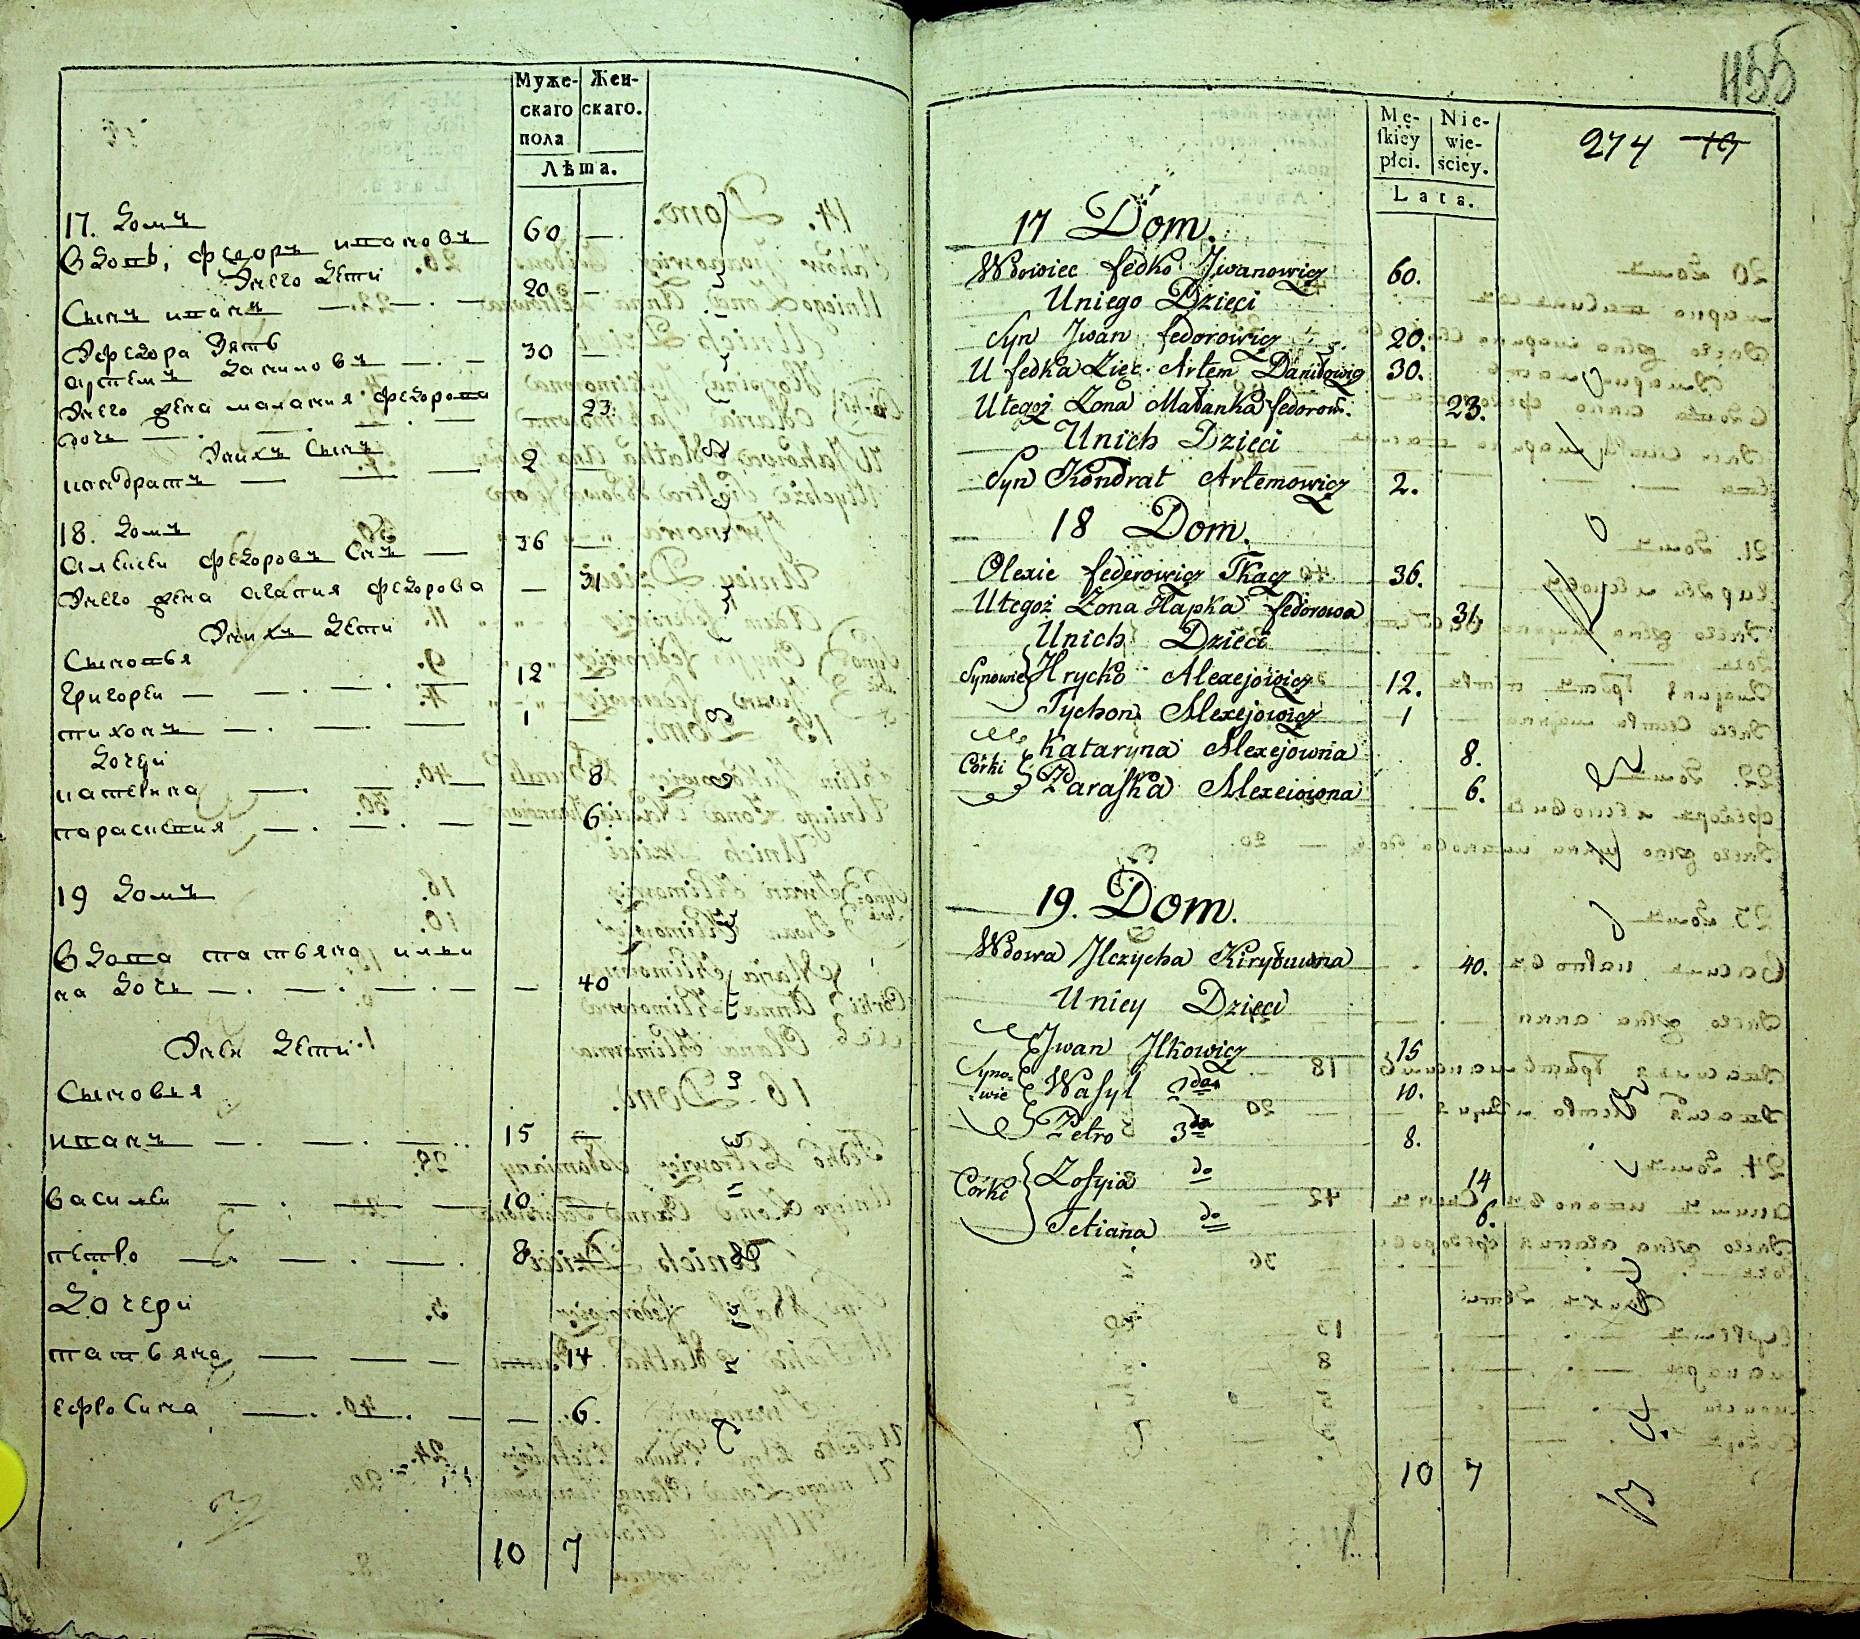 Муже-
скаго
пола
Жен-
скаго.
Лѣта.
17. Домъ
Вдовъ, Федоръ Ивановъ 60 —
Унего Дети
Сынъ Иванъ — 20 —
Уфедора Зять
Артемъ Даниловъ — 30 —
Унего жена Маланія Федорова
дочь — — 23.
Унихъ Сынъ
Кандратъ — 2 —
18. Домъ
Алексеи Федоровъ Ткачъ — 36 —
Унего жена Агапия Федорова — 31
Унихъ Дети
Сыновья
Григореи — 12 —
Тихонъ — 1 —
Дочери
Катерина — 8
Парасковия — 6.
19 Домъ
Вдова Татьяна
на дочь — 40
Унеи Дети
Сыновья
Иванъ — 15 —
Василеи — 10 —
Петро — 8 —
Дочери
Татьяна — 14
Ефросина — 6.
10 7
1155
Mę-
skiey
płci.
Nie-
wie-
ściey.
Lata.
274 19
17 Dom.
Wdowiec Fedko Jwanowicz 60.
Uniego Dzieci
Syn Jwan Fedorowicz 20.
U Fedka Zięc Artem Daniłowicz 30.
Utegoż Żona Małanka Fedorow. 23.
Unich Dzieci
Syn Kondrat Artemowicz 2.
18 Dom.
Olexie Federowicz Tkacz 36.
Utegoż Żona Hapka Fedorowa 31.
Unich Dzieci
Synowie Hrycko Alexejowicz 12.
Tychon Alexejowicz 1
Córki Kataryna Alexejowna 8.
Paraska Alexeiowna 6.
19. Dom.
Wdowa Jlczycha Kiryłuwna 40.
Uniey Dzieci
Jwan Jlkowicz 15
Syno-
wie Wasyl 2do 10.
Petro 3do 8.
Córki Zosyia do 14
Tetiana do 6.
10 7